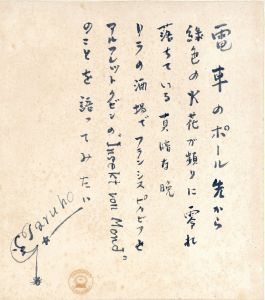 電車のポール尖から
緑色の火花が頻りに零れ
落ちている真暗な晩
リラの酒場でフランシスピカビアと
アルフレッドクビンの"Insekt von Mond"
のことを語ってみたい
Taruho